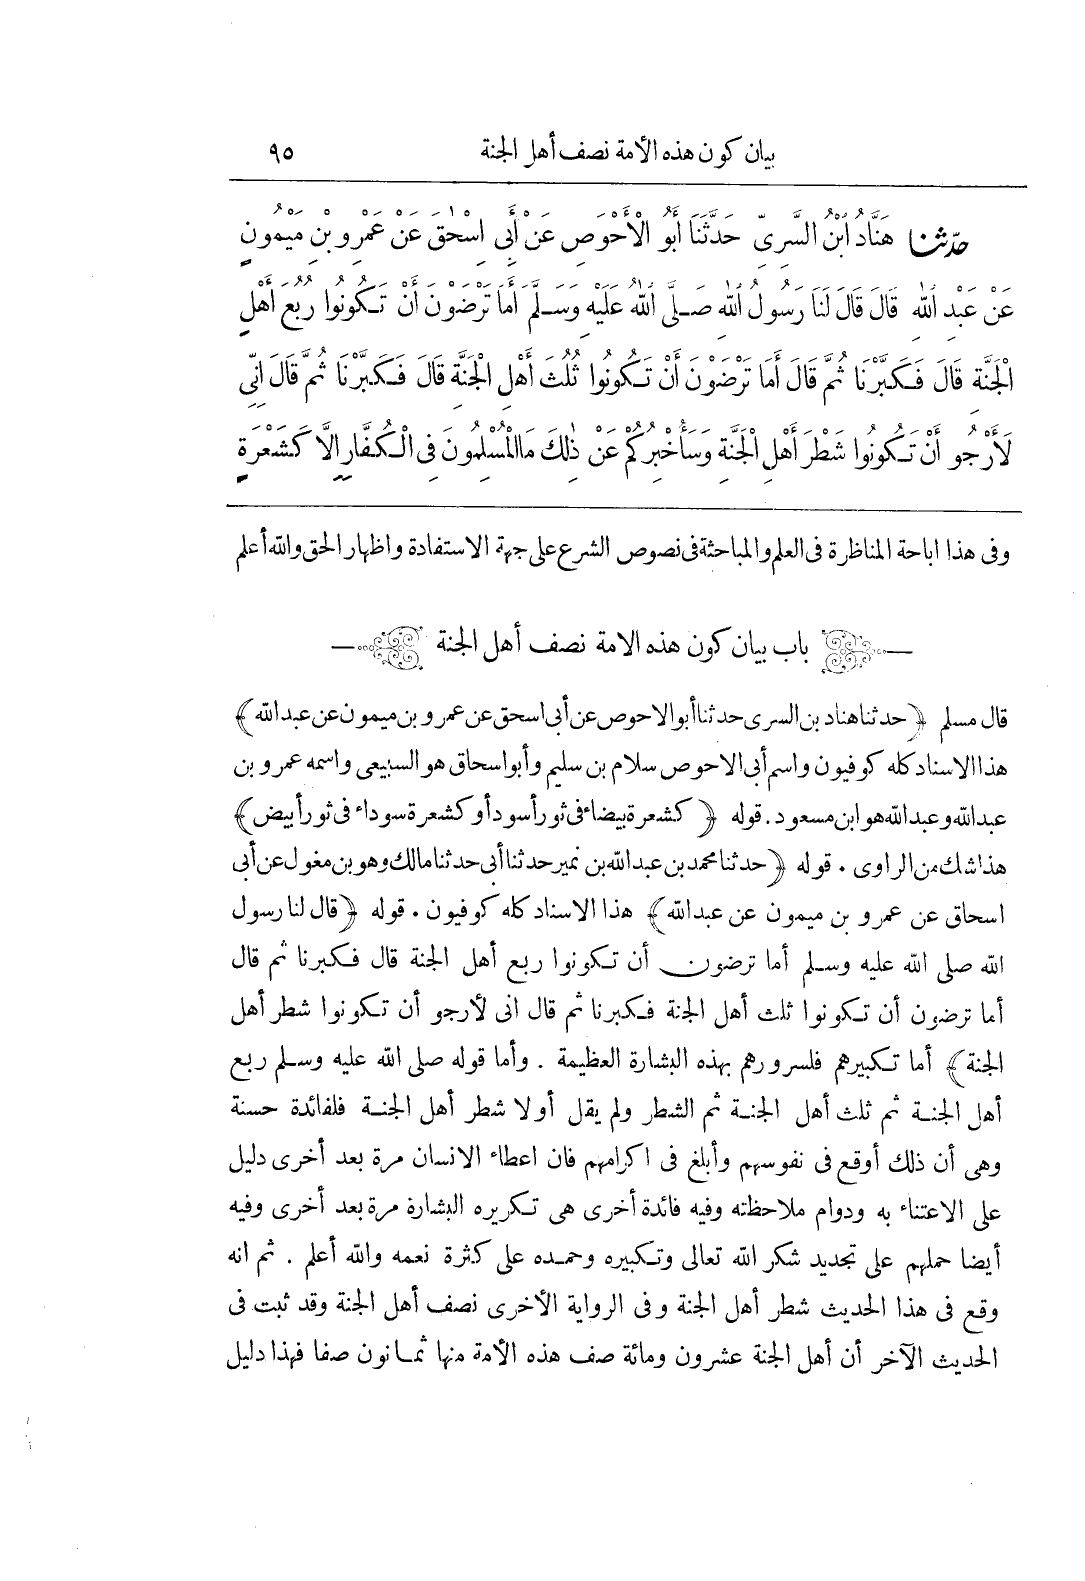 بيان كون هذه الأمة نصف أهل الجنة ٩٥
حدّثنا هَنَّادُ ابْنُ السَّرِىِّ حَدَّثَنَا أَبُو الْأَحْوَصِ عَنْ أَبِى إِسْحٰقَ عَنْ عَمْرِو بْنِ مَيْمُونٍ
عَنْ عَبْدِ اللّٰهِ قَالَ قَالَ لَنَا رَسُولُ اللّٰهِ صَلَّى اللّٰهُ عَلَيْهِ وَسَلَّمَ أَمَا تَرْضَوْنَ أَنْ تَكُونُوا رُبُعَ أَهْلِ
الْجَنَّةِ قَالَ فَكَبَّرْنَا ثُمَّ قَالَ أَمَا تَرْضَوْنَ أَنْ تَكُونُوا ثُلُثَ أَهْلِ الْجَنَّةِ قَالَ فَكَبَّرْنَا ثُمَّ قَالَ إِنِّى
لَأَرْجُو أَنْ تَكُونُوا شَطْرَ أَهْلِ الْجَنَّةِ وَسَأُخْبِرُكُمْ عَنْ ذٰلِكَ مَا الْمُسْلِمُونَ فِى الْكُفَّارِ إِلَّا كَشَعْرَةٍ
وفى هذا اباحة المناظرة فى العلم والمباحثة فى نصوص الشرع على جهة الاستفادة واظهار الحق والله أعلم
باب بيان كون هذه الامة نصف أهل الجنة
قال مسلم ﴿حدثنا هناد بن السرى حدثنا أبو الاحوص عن أبى اسحق عن عمرو بن ميمون عن عبد الله﴾
هذا الاسناد كله كوفيون واسم أبى الاحوص سلام بن سليم وأبو اسحاق هو السبيعى واسمه عمرو بن
عبد الله وعبد الله هو ابن مسعود. قوله ﴿كشعرة بيضاء فى ثور أسود أو كشعرة سوداء فى ثور أبيض﴾
هذا شك من الراوى . قوله ﴿حدثنا محمد بن عبد الله بن نمير حدثنا أبى حدثنا مالك وهو بن مغول عن أبى
اسحاق عن عمرو بن ميمون عن عبد الله﴾ هذا الاسناد كله كوفيون . قوله ﴿قال لنا رسول
الله صلى الله عليه وسلم أما ترضون أن تكونوا ربع أهل الجنة قال فكبرنا ثم قال
أما ترضون أن تكونوا ثلث أهل الجنة فكبرنا ثم قال انى لأرجو أن تكونوا شطر أهل
الجنة﴾ أما تكبيرهم فلسرورهم بهذه البشارة العظيمة . وأما قوله صلى الله عليه وسلم ربع
أهل الجنة ثم ثلث أهل الجنة ثم الشطر ولم يقل أولا شطر أهل الجنة فلفائدة حسنة
وهى أن ذلك أوقع فى نفوسهم وأبلغ فى اكرامهم فان اعطاء الانسان مرة بعد أخرى دليل
على الاعتناء به ودوام ملاحظته وفيه فائدة أخرى هى تكريره البشارة مرة بعد أخرى وفيه
أيضا حملهم على تجديد شكر الله تعالى وتكبيره وحمده على كثرة نعمه والله أعلم . ثم انه
وقع فى هذا الحديث شطر أهل الجنة وفى الرواية الأخرى نصف أهل الجنة وقد ثبت فى
الحديث الآخر أن أهل الجنة عشرون ومائة صف هذه الأمة منها ثمانون صفا فهذا دليل